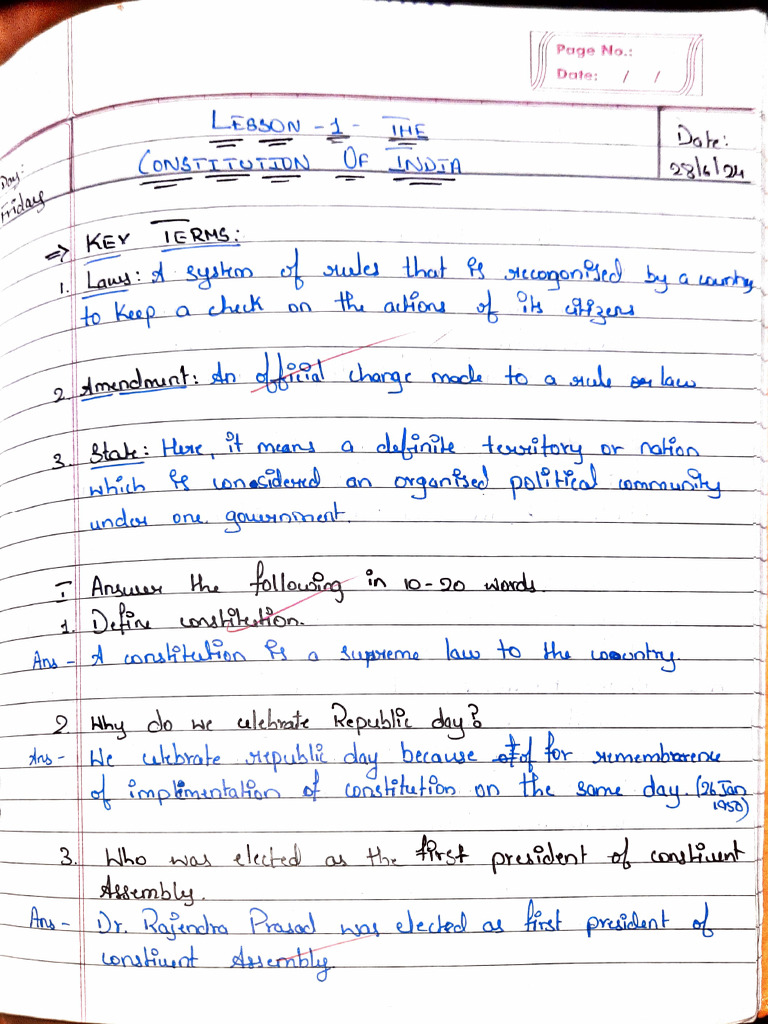 Page No.:
Date: / /
LESSON - 1 - THE
CONSTITUTION OF INDIA
Date:
28/6/24
Day:
Friday
⇒ KEY TERMS:
1. Laws: A system of rules that is recogonised by a country
to keep a check on the actions of its citizens
2. Amendment: An official change made to a rule or law
3. State: Here, it means a definite territory or nation
which is considered an organised political community
under one government.
I Answer the following in 10-20 words
1. Define constitution.
Ans - A constitution is a supreme law to the country.
2 Why do we celebrate Republic day?
Ans - We celebrate republic day because of for remembrarence
of implimentation of constitution on the same day. (26 Jan
1950)
3. Who was elected as the first president of constiuent
Assembly.
Ans - Dr. Rajendra Prasad was elected as first president of
constiuent Assembly.